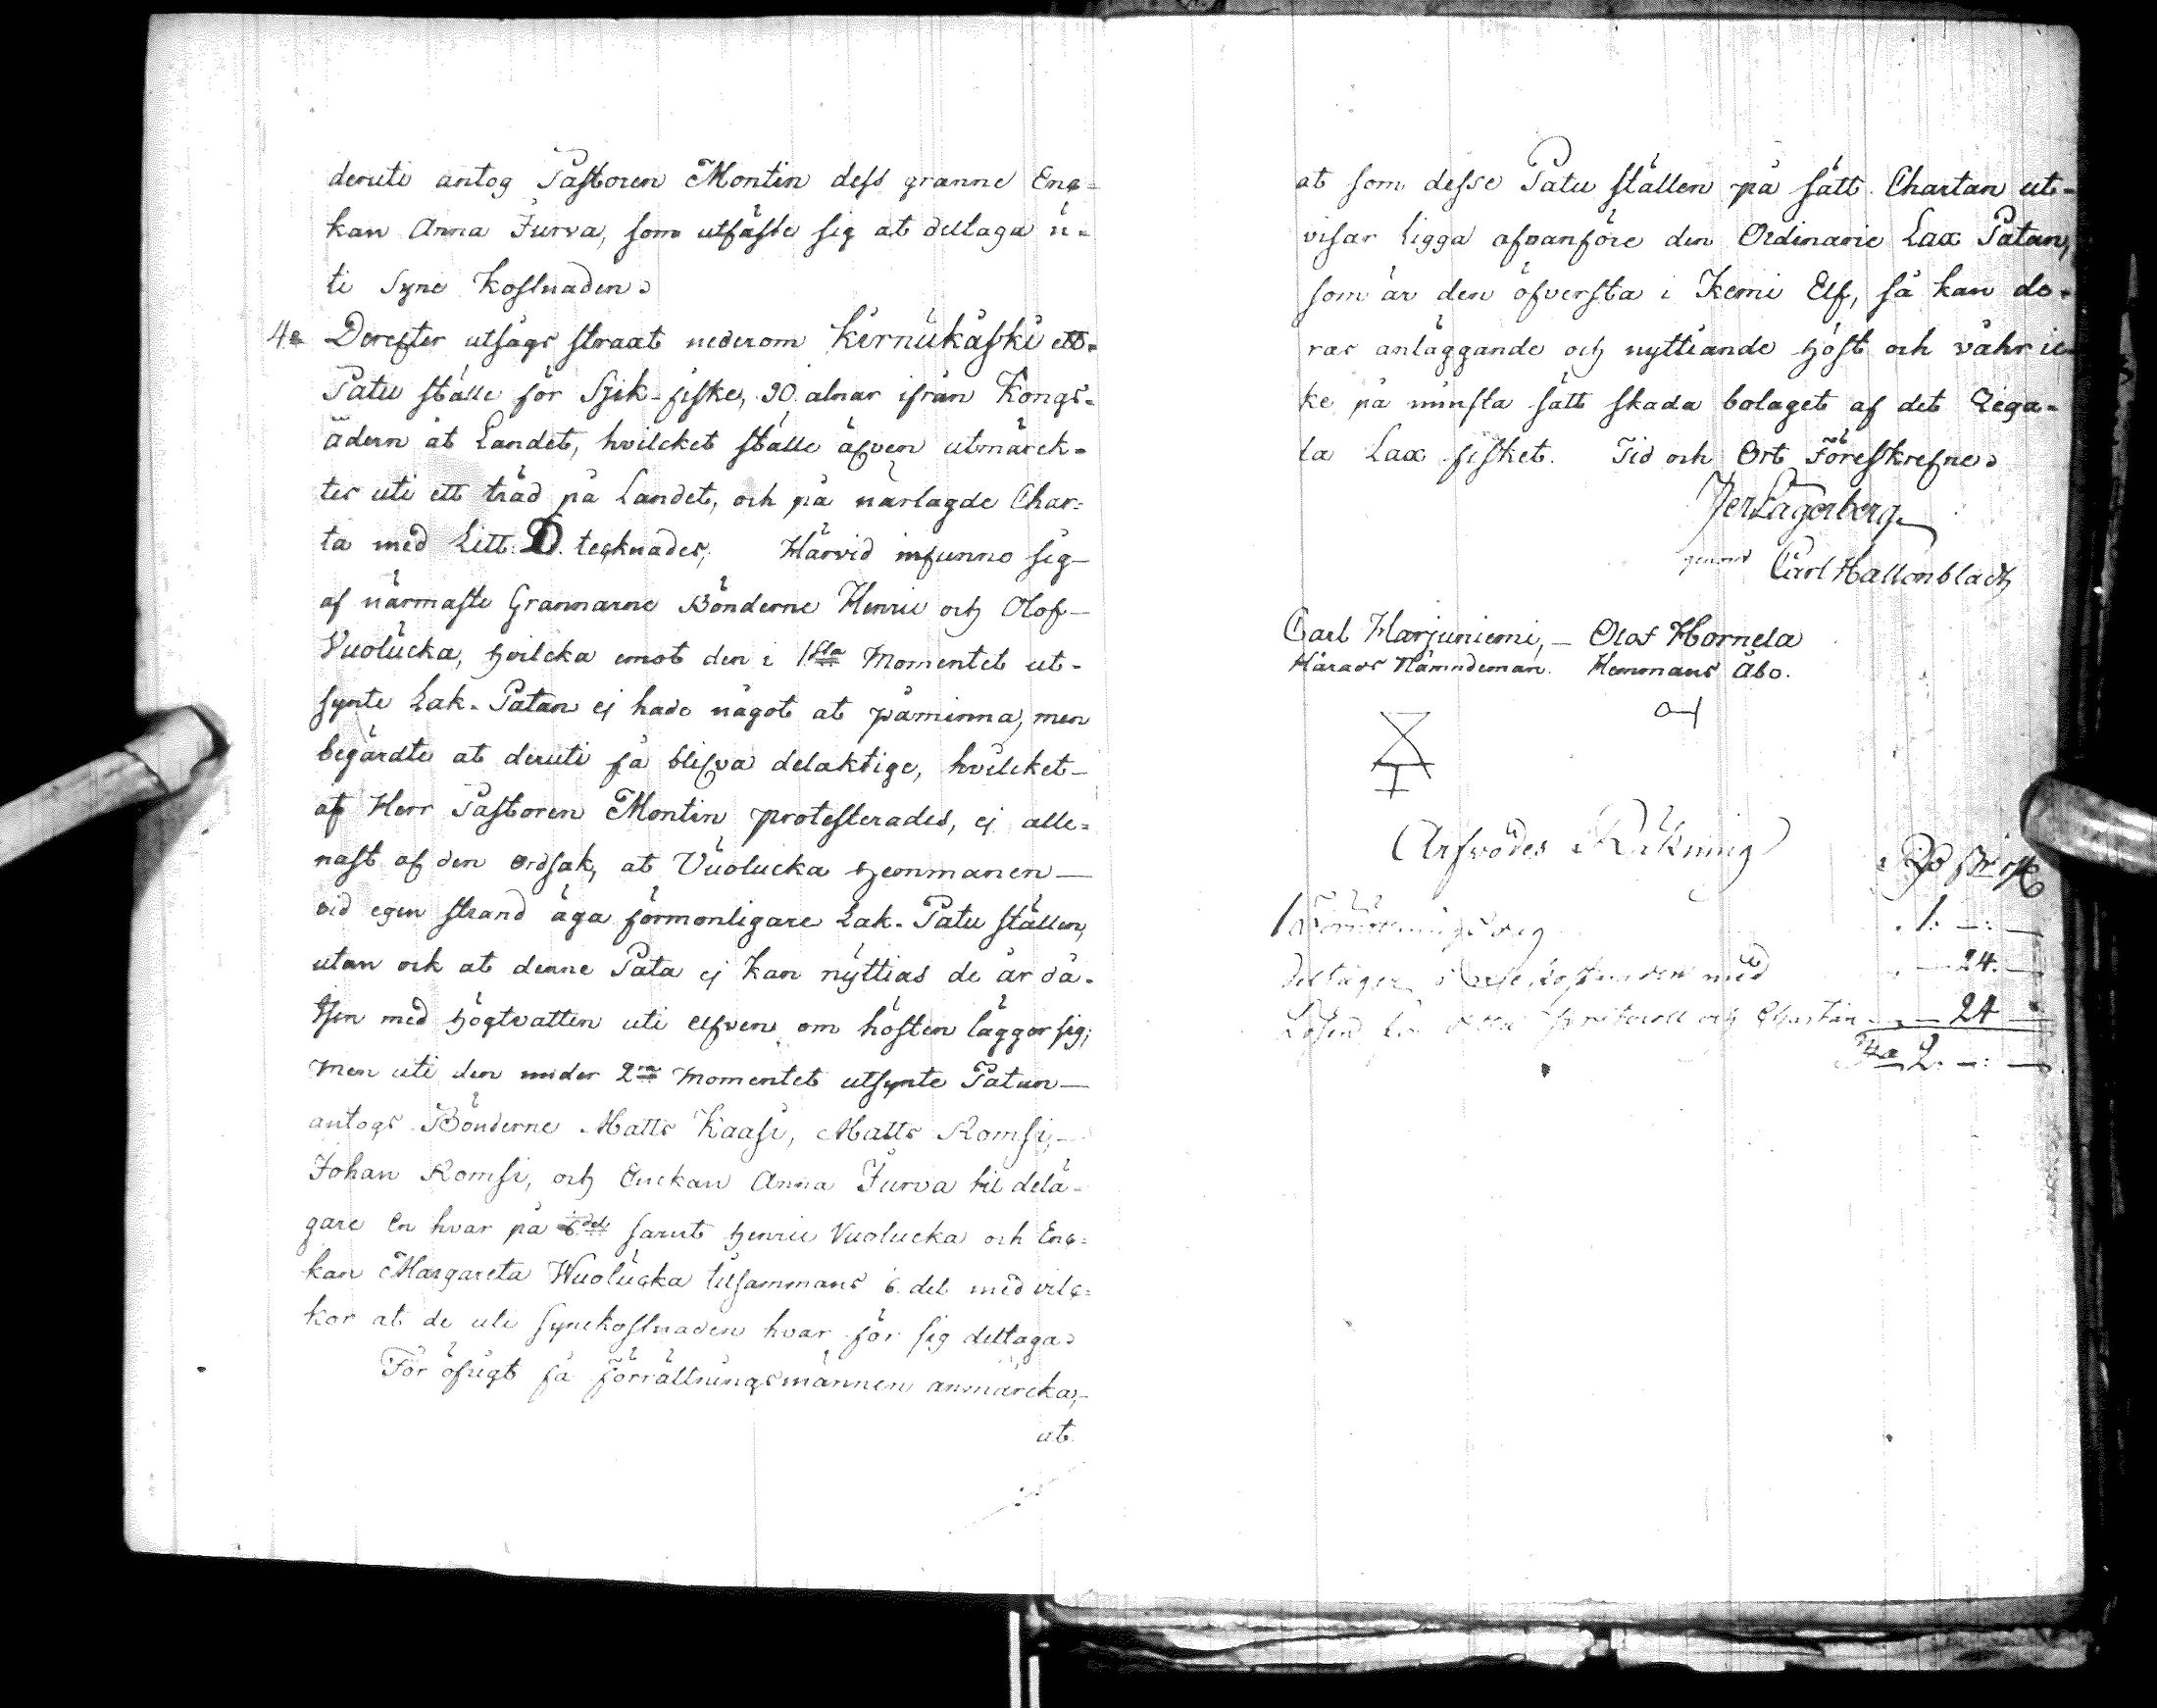 deruti antog Pastoren Montin dess granne Enc=
kan Anna Jurva, som utfäste sig at deltaga u=
ti Syne kostnaden.
4e Derefter utsågs straxt nederom Kirnukåski ett=
Patu ställe för Sjik-fiske, 30 alnar ifrån Kongs=
ådern åt Landet, hvilcket ställe äfven utmärck=
tes uti ett träd på Landet, och på närlagde Char=
ta med Litt: D. tecknades; Härvid infunno sig
af närmaste Grannarne Bönderne Henric och Olof
Vuolucka, hvilcka emot den i 1sta Momentet ut=
synte Lak-Patan ej hade något at påminna, men
begärdte at deruti få blifva delaktige, hvilcket
af Herr Pastoren Montin protesterades, ej alle=
nast af den ordsak, at Vuolucka hemmanen
vid egen strand äga förmonligare Lak-Patu ställen,
utan ock at denne Pata ej kan nyttias de år då
Isen med högtvatten uti elfven om hösten lägger sig;
men uti den under 2ra Momentet utsynte Patan
antogs Bönderne Matts Kaasi, Matts Romsi,
Johan Romsi, och Enckan Anna Jurva til delä=
gare en hvar på 6del samt Henric Vuolucka och Enc=
kan Margareta Wuolucka tilsammans 6 del med vilc=
kor at de uti synekostnaden hvar för sig deltaga.
För öfrigt få Förrättningsmännen anmärcka,
at
at som desse Patu ställen på sätt Chartan ut=
visar ligga ofvanföre den Ordinarie Lax Patan,
som är den öfversta i Kemi Elf, så kan de=
ras anläggande och nyttiande höst och våhr ic=
ke på minsta sätt skada bolaget af det Rega=
la Lax fisket. Tid och Ort Föreskrefne.
Per Lagerberg
genom Carl Hallonbladh
Carl Harjuniemi, — Olof Hornela
Härads Nämndeman. Hemmans Åbo.
Arfvodes Räkning
1 Förrättningsdag 1. — —
deltager i med — 24. —
Lösen för Protocoll och Chartan — 24 —
2. — —